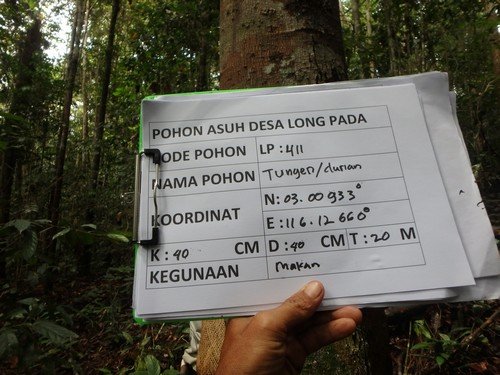 POHON ASUH DESA LONG PADA
KODE POHON LP : 411
NAMA POHON Tungen/durian
KOORDINAT N: 03.00933°
E: 116.12660°
K : 40 CM D : 40 CM T : 20 M
KEGUNAAN Makan